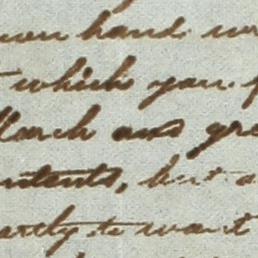 own hand
which you
March and gre
ntents, but a
artly to want